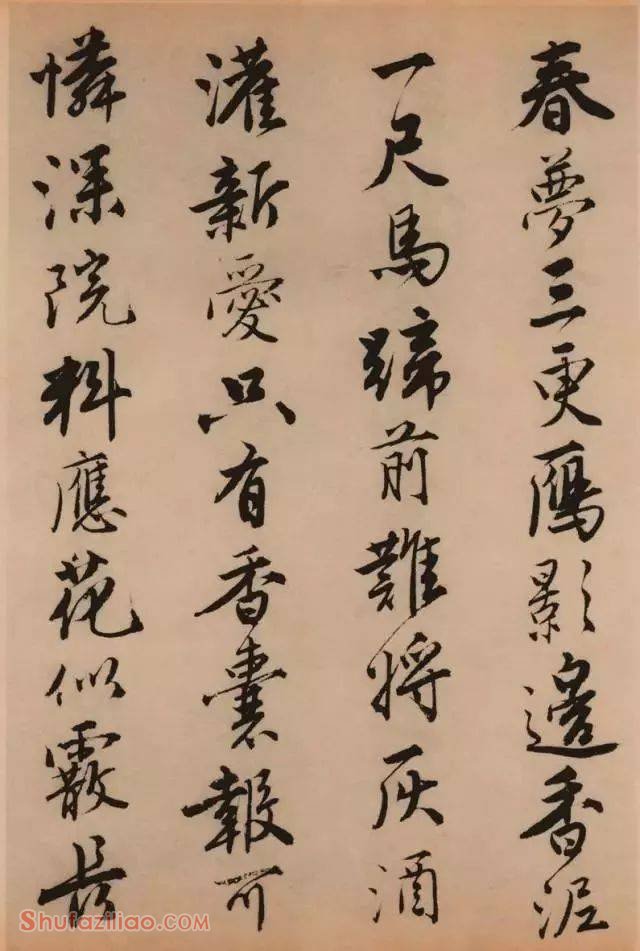 春夢三更鴈影邊香泥
一尺馬蹄前難將灰酒
灌新愛只有香囊報可
憐深院料應花似霰長
Shufaziliao.com